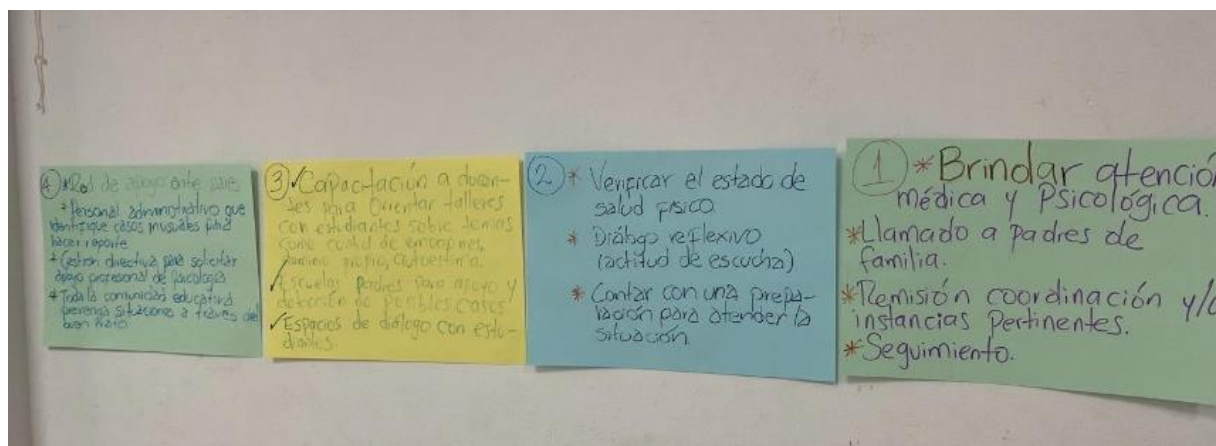 4 * Red de apoyo entre pares
* Personal administrativo que
identifique casos inusuales para
hacer reporte
* Gestión directiva para solicitar
apoyo profesional de Psicología
* Toda la comunidad educativa
prevenga situaciones a través del
buen trato.
3 ✓ Capacitación a docen-
tes para Orientar talleres
con estudiantes sobre temas
como control de emociones,
dominio propio, autoestima.
✓ Escuelas Padres para apoyo y
detección de posibles casos
✓ Espacios de diálogo con estu-
diantes.
2 * Verificar el estado de
salud físico
* Diálogo reflexivo
(actitud de escucha)
* Contar con una prepa-
ración para atender la
situación.
1 * Brindar atención
médica y Psicológica.
* Llamado a padres de
familia.
* Remisión coordinación y/o
instancias Pertinentes.
* Seguimiento.